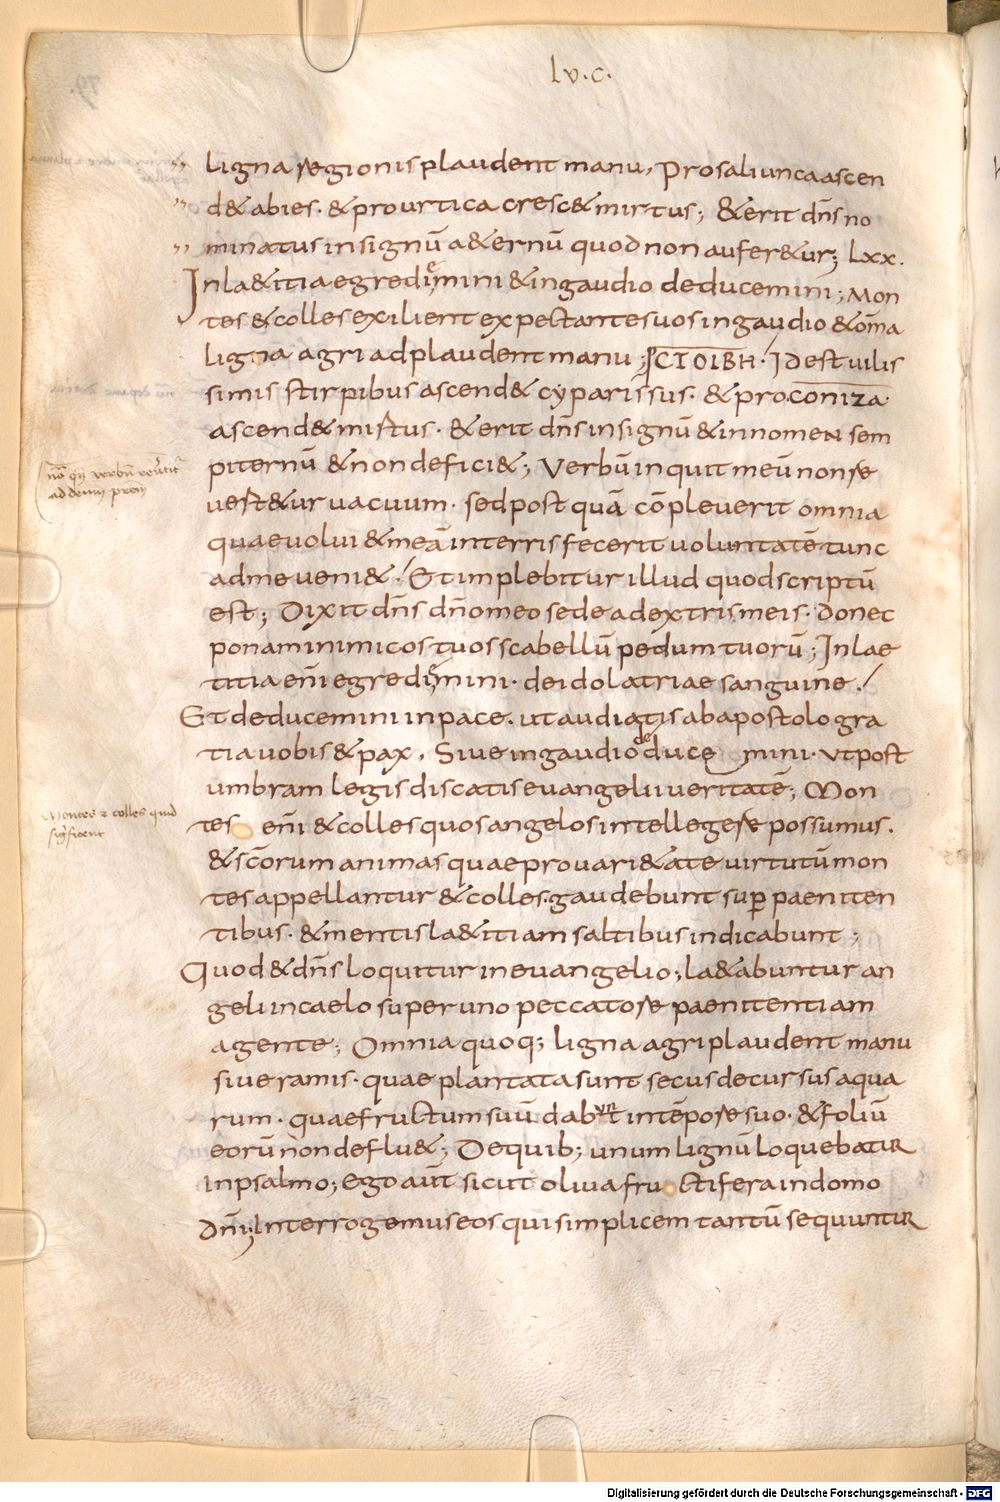 lv.c.
ligna regionis plaudent manu, Pro saliunca ascen
d& abies. & pro urtica cresc& mirtus; & erit dn̄s no
minatus in signū a&ernū quod non aufer&ur; lxx.
In la&itia egredemini & in gaudio deducemini; Mon
tes & colles exilient expectantes uos in gaudio & om̄a
ligna agri adplaudent manu; CTOIBH. Id est uilis
simis stirpibus ascend& cyparissus. & pro coniza
ascend& mistus. & erit dn̄s in signū & in nomen sem
piternū & non defici&; Verbū inquit meū non re
uert&ur vacuum. sed post quā cōpleuerit omnia
quae uolui & meā in terris fecerit uoluntatē tunc
ad me ueni&! Et implebitur illud quod scriptū
est; Dixit dn̄s dn̄o meo sede a dextris meis. Donec
ponam inimicos tuos scabellū pedum tuorū; In lae
titia en̄i egredemini. de idolatriae sanguine!
Et deducemini in pace. ut audiatis ab apostolo gra
tia vobis & pax. Sive in gaudio deducemini. Vt post
umbram legis discatis euangelii ueritatē; Mon
tes en̄i & colles quos angelos intellegere possumus.
& sc̄orum animas quae pro uari&ate uirtutū mon
tes appellantur & colles. gaudebunt sup paeniten
tibus. & mentis la&itiam saltibus indicabunt;
Quod & dn̄s loquitur in euangelio; la&abuntur an
geli in caelo super uno peccatore paenitentiam
agente; Omnia quoq; ligna agri plaudent manu
siue ramis. quae plantata sunt secus decursus aqua
rum. quae fructum suū dabunt in tēpore suo. & foliū
eorū non deflu&; De quib; unum lignū loquebatur
in psalmo; ego aūt sicut oliua fructifera in domo
dn̄i; Interrogemus eos qui simplicem tantū sequuntur
Montes & colles quid
significent
Digitalisierung gefördert durch die Deutsche Forschungsgemeinschaft - DFG